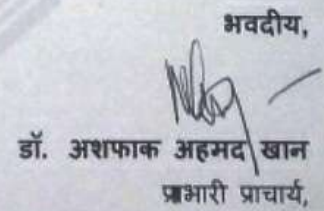 भवदीय,
डॉ. अशफाक अहमद खान
प्रभारी प्राचार्य,